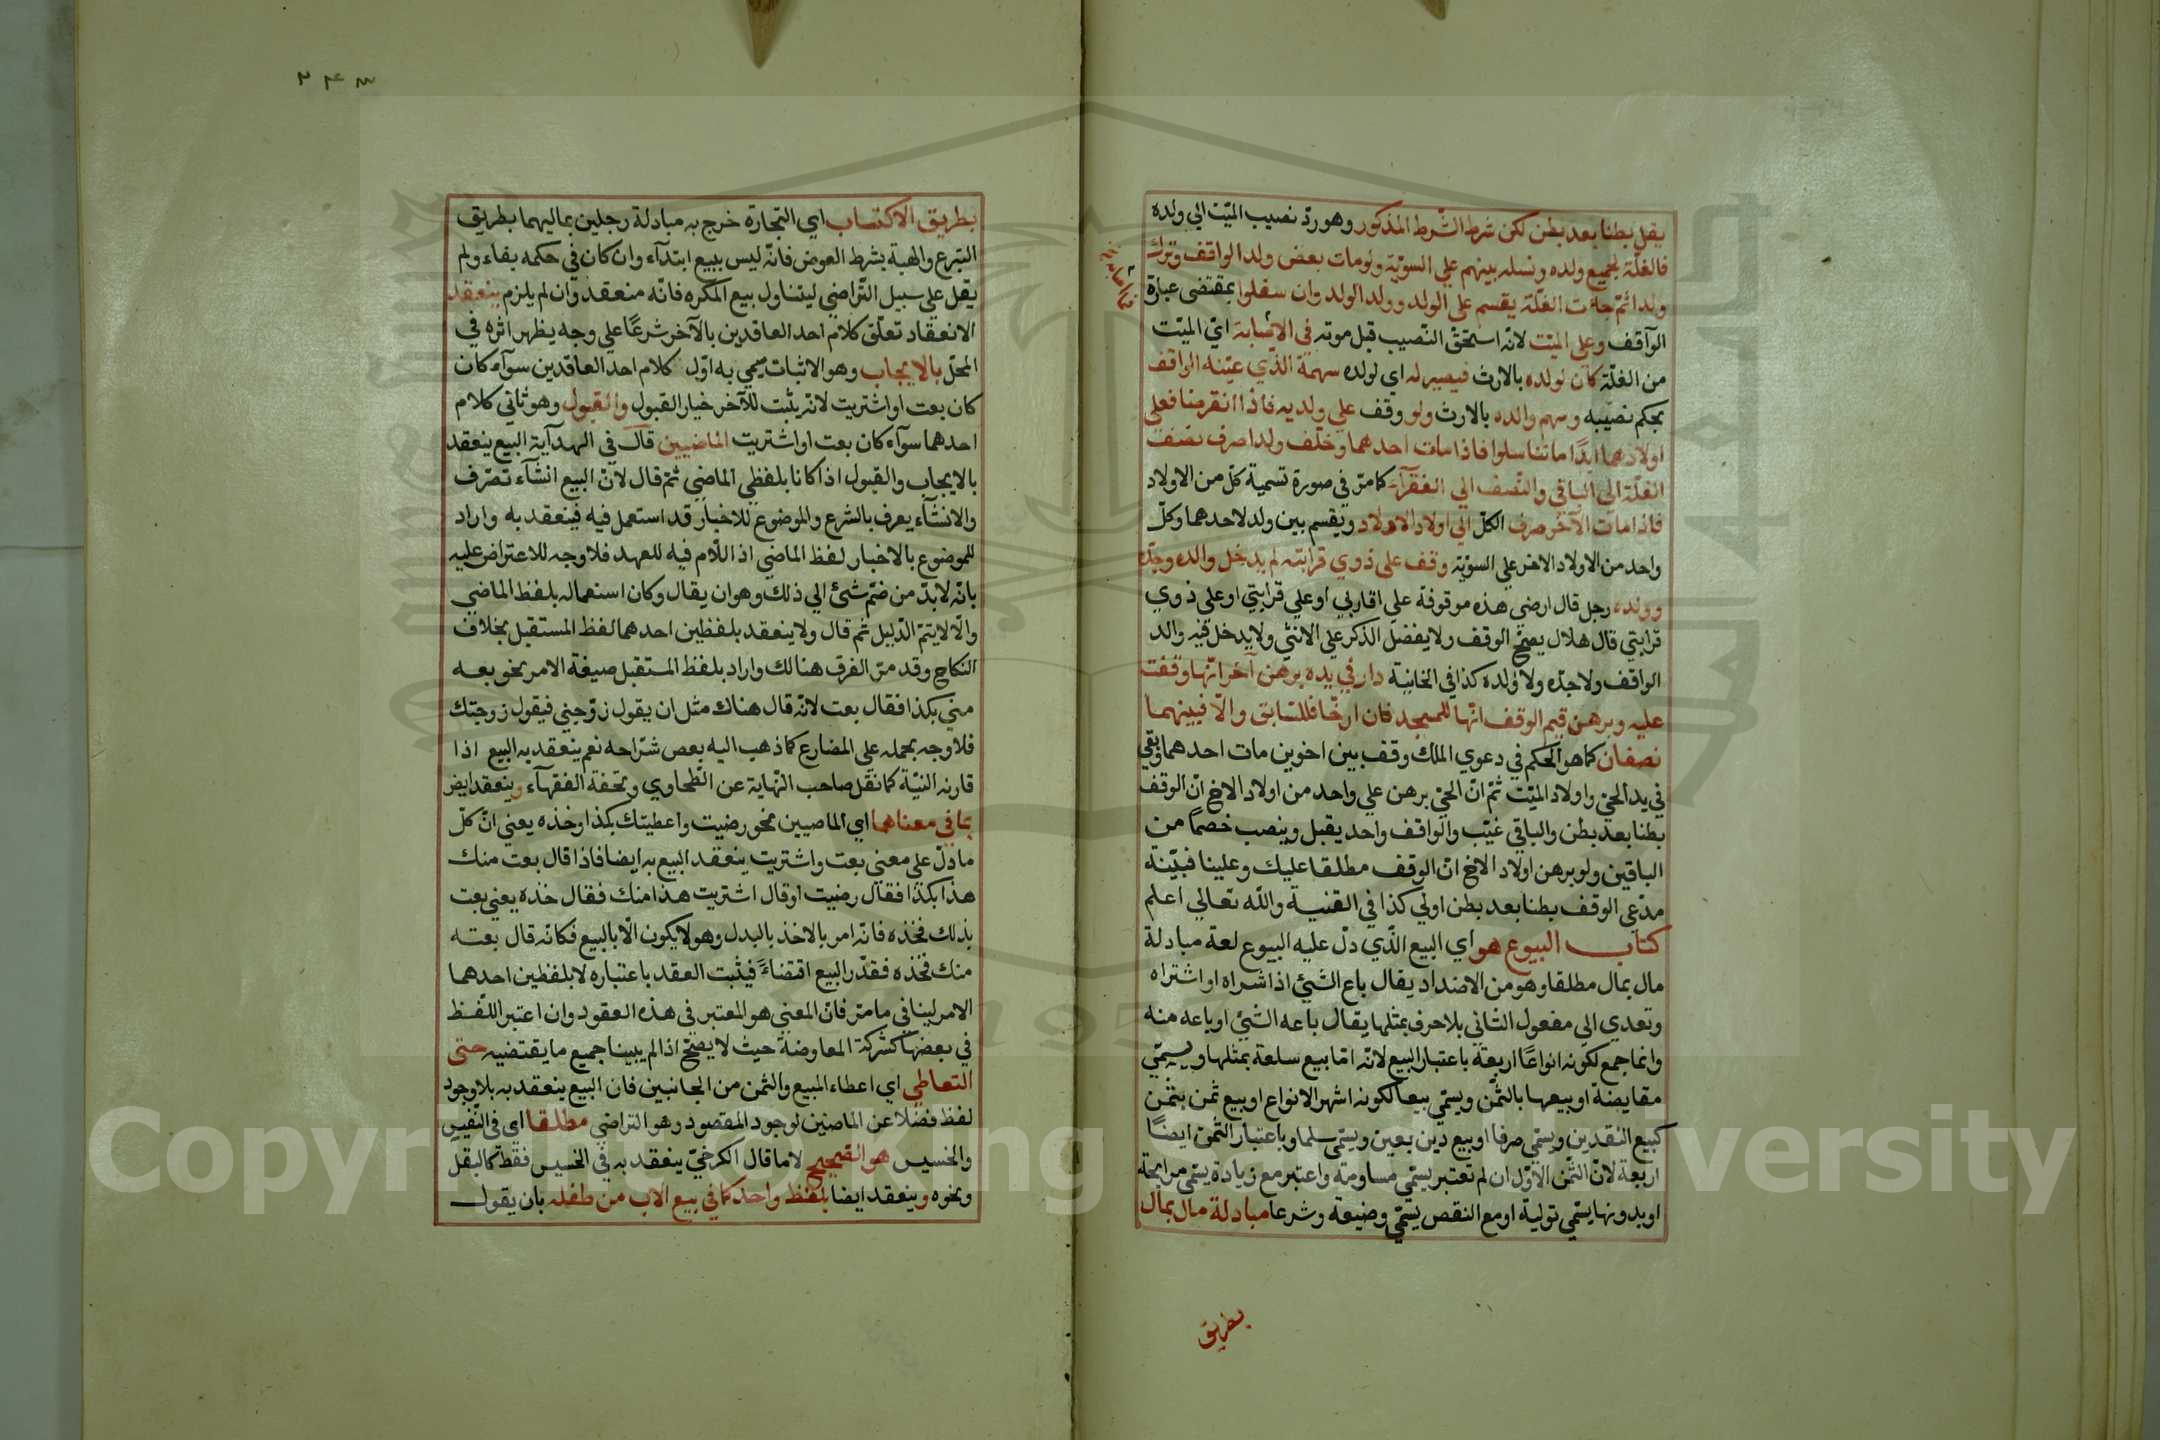 يقل بطنا بعد بطن لكن شرط الشرط المذكور وهو ردّ نصيب الميّت الي ولده
فالغلّة لجميع ولده ونسله بينهم علي السويّة ولومات بعض ولد الواقف وترك
ولدا ثمّ جآءت الغلّة يقسم علي الولد وولد الولد وان سفلوا بمقتضي عبارة
الواقف وعلي الميّت لانّه استحقّ النّصيب قبل موته في الاصابة ايّ الميّت
من الغلّة كان لولده بالارث فيصير له اي لولده سهمه الّذي عيّنه الواقف
بحكم نصيبه وسهم والده بالارث ولو وقف علي ولديه فاذا انقرضا فعلي
اولادهما ابدًا ماتناسلوا فاذا مات احدهما وخلّف ولدا صرف نصف
الغلّة الي الباقي والنّصف الي الفقرآء كما مرّ في صورة تسمية كلّ من الاولاد
فاذا مات الآخر صرف الكلّ الي اولاد الاولاد ويقسم بين ولد لاحدهما وكلّ
واحد من الاولاد الاخر علي السويّة وقف علي ذوي قرابته لم يدخل والده وجدّه
وولده رجل قال ارضي هذه موقوفة علي اقاربي او علي قرابتي او علي ذوي
قرابتي قال هلال يصحّ الوقف ولا يفضل الذكر علي الانثي ولا يدخل فيه والد
الواقف ولا جدّه ولا ولده كذا في الخانيّة دار في يده برهن آخر انّها وقفت
عليه وبرهن قيم الوقف انّها للمسجد فان ارّخا فللسابق والّا فبينهما
نصفان كما هو الحكم في دعوي الملك وقف بين اخوين مات احدهما وبقي
في يد الحيّ واولاد الميّت ثمّ انّ الحيّ برهن علي واحد من اولاد الاخ انّ الوقف
بطنا بعد بطن والباقي غيّب والواقف واحد يقبل وينصب خصما من
الباقين ولو برهن اولاد الاخ انّ الوقف مطلقا عليك وعلينا فبيّنة
مدّعي الوقف بطنا بعد بطن اولي كذا في القنية والله تعالي اعلم
كتاب البيوع هو اي البيع الّذي دلّ عليه البيوع لغة مبادلة
مال بمال مطلقا وهو من الاضداد يقال باع الشيئ اذا شراه او اشتراه
وتعدي الي مفعول الثاني بلا حرف بمثلها يقال باعه الشيئ او باعه منه
وانما جمع لكونه انواعًا اربعة باعتبار البيع لانّه امّا بيع سلعة بمثلها ويسمّي
مقايضة او بيعها بالثّمن ويسمّي بيعا لكونه اشهر الانواع او بيع ثمن بثمن
كبيع النقدين ويسمّي صرفا او بيع دين بعين ويسمّي سلما وباعتبار الثّمن ايضًا
اربعة لانّ الثّمن الاوّل ان لم تعتبر يسمّي مساومة واعتبر مع زيادة يسمّي مرابحة
او بدونها يسمّي تولية او مع النقص يسمّي وضيعة وشرعا مبادلة مال بمال
بطريق
٢٤٣
بطريق الاكتساب اي التجارة خرج به مبادلة رجلين بماليهما بطريق
التبرع والهبة بشرط العوض فانّه ليس ببيع ابتدآء وان كان في حكمه بقاء ولم
يقل علي سبيل التّراضي ليتناول بيع المكره فانّه منعقد وان لم يلزم ينعقد
الانعقاد تعلّق كلام احد العاقدين بالآخر شرعًا علي وجه يظهر اثره في
المحلّ بالايجاب وهو الاثبات سمي به اوّل كلام احد العاقدين سوآء كان
كان بعت او اشتريت لانّه يثبت للآخر خيار القبول والقبول وهو ثاني كلام
احدهما سوآء كان بعت او اشتريت الماضيين قال في الهدآية البيع ينعقد
بالايجاب والقبول اذا كانا بلفظي الماضي ثمّ قال لانّ البيع انشآء تصرّف
والانشآء يعرف بالشرع والموضوع للاخبار قد استعمل فيه فينعقد به واراد
للموضوع بالاخبار لفظ الماضي اذ اللّام فيه للعهد فلا وجه للاعتراض عليه
بانّه لابدّ من ضمّ شئ الي ذلك وهو ان يقال وكان استعماله بلفظ الماضي
والّا لا يتمّ الدّليل ثمّ قال ولا ينعقد بلفظين احدهما لفظ المستقبل بخلاف
النكاح وقد مرّ الفرق هنالك واراد بلفظ المستقبل صيغة الامر نحو بعه
منّي بكذا فقال بعت لانّه قال هناك مثل ان يقول زوّجني فيقول زوجتك
فلا وجه بحمله علي المضارع كما ذهب اليه بعض شرّاحه نعم ينعقد به البيع اذا
قارنه النيّة كما نقل صاحب النّهاية عن الطّحاوي وتحفة الفقهآء وينعقد ايض
بما في معناهما اي الماضيين نحو رضيت واعطيتك بكذا وخذه يعني انّ كلّ
ما دلّ علي معني بعت واشتريت ينعقد البيع به ايضا فاذا قال بعت منك
هذا بكذا فقال رضيت او قال اشتريت هذا منك فقال خذه يعني بعت
بذلك فخذه فانّه امر بالاخذ بالبدل وهو لا يكون الّا بالبيع فكانّه قال بعته
منك فخذه فقدّر البيع اقتضاءً فيثبت العقد باعتباره لا بلفظين احدهما
الامر لينافي ما مرّ فانّ المعني هو المعتبر في هذه العقود وان اعتبر اللّفظ
في بعضها كشركة المعاوضة حيث لا يصحّ اذا لم يبينا جميع ما يقتضيه حتي
التعاطي اي اعطاء المبيع والثمن من الجانبين فان البيع ينعقد به بلا وجود
لفظ فضلًا عن الماضيين لوجود المقصود وهو التراضي مطلقا اي في النّفيس
والخسيس هو الصّحيح لا ما قال الكرخيّ ينعقد به في الخسيس فقط كالبقل
ونحوه وينعقد ايضا بلفظ واحد كما في بيع الاب من طفله بان يقول
Copyright © King Saud University